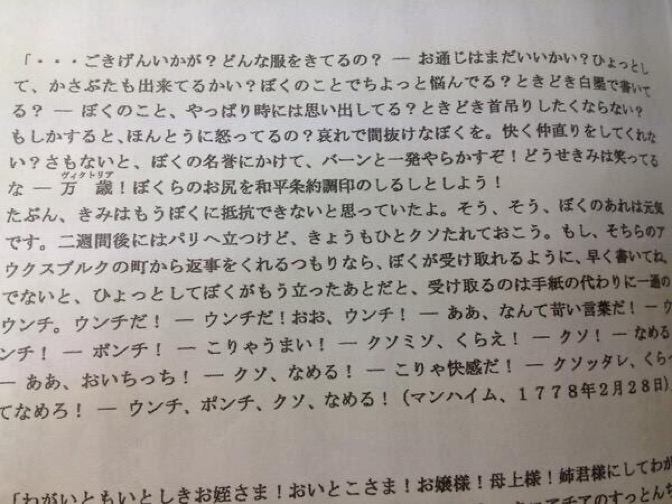 「・・・ごきげんいかが？どんな服をきてるの？ ― お通じはまだいいかい？ひょっとし
て、かさぶたも出来てるかい？ぼくのことでちょっと悩んでる？ときどき白墨で書いて
る？ ― ぼくのこと、やっぱり時には思い出してる？ときどき首吊りしたくならない？
もしかすると、ほんとうに怒ってるの？哀れで間抜けなぼくを。快く仲直りをしてくれな
い？さもないと、ぼくの名誉にかけて、バーンと一発やらかすぞ！どうせきみは笑ってる
ヴィクトリア
な ― 万　歳！ぼくらのお尻を和平条約調印のしるしとしよう！
たぶん、きみはもうぼくに抵抗できないと思っていたよ。そう、そう、ぼくのあれは元気
です。二週間後にはパリへ立つけど、きょうもひとクソたれておこう。もし、そちらのア
ウクスブルクの町から返事をくれるつもりなら、ぼくが受け取れるように、早く書いてね。
でないと、ひょっとしてぼくがもう立ったあとだと、受け取るのは手紙の代わりに一通の
ウンチ。ウンチだ！ ― ウンチだ！おお、ウンチ！ ― ああ、なんて甘い言葉だ！ ― ウ
ンチ！ ― ポンチ！ ― こりゃうまい！ ― クソミソ、くらえ！ ― クソ！ ― なめる
― ああ、おいちっち！ ― クソ、なめる！ ― こりゃ快感だ！ ― クソッタレ、くら
てなめろ！ ― ウンチ、ポンチ、クソ、なめる！（マンハイム、１７７８年２月２８日）
「わがいともいとしきお姪さま！おいとこさま！お嬢様！母上様！姉君様にしてわが